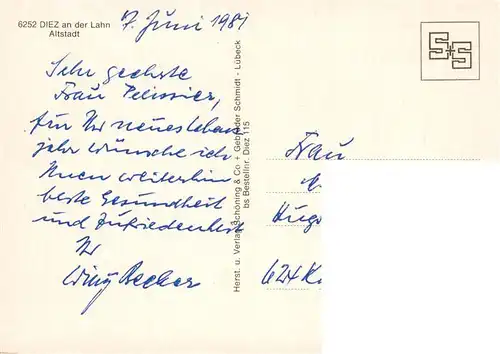 6252 DIEZ an der Lahn
Altstadt
7. Juni 1981
Sehr geehrte
Frau Pelissier,
für Ihr neues Lebens
jahr wünsche ich
Ihnen weiterhin
beste Gesundheit
und Zufriedenheit
Ihr
Willy Becker
Herst. u. Verlag Schöning & Co + Gebrüder Schmidt - Lübeck
bs Bestellnr. Diez 115
S+S
Frau
Hugo
624 K